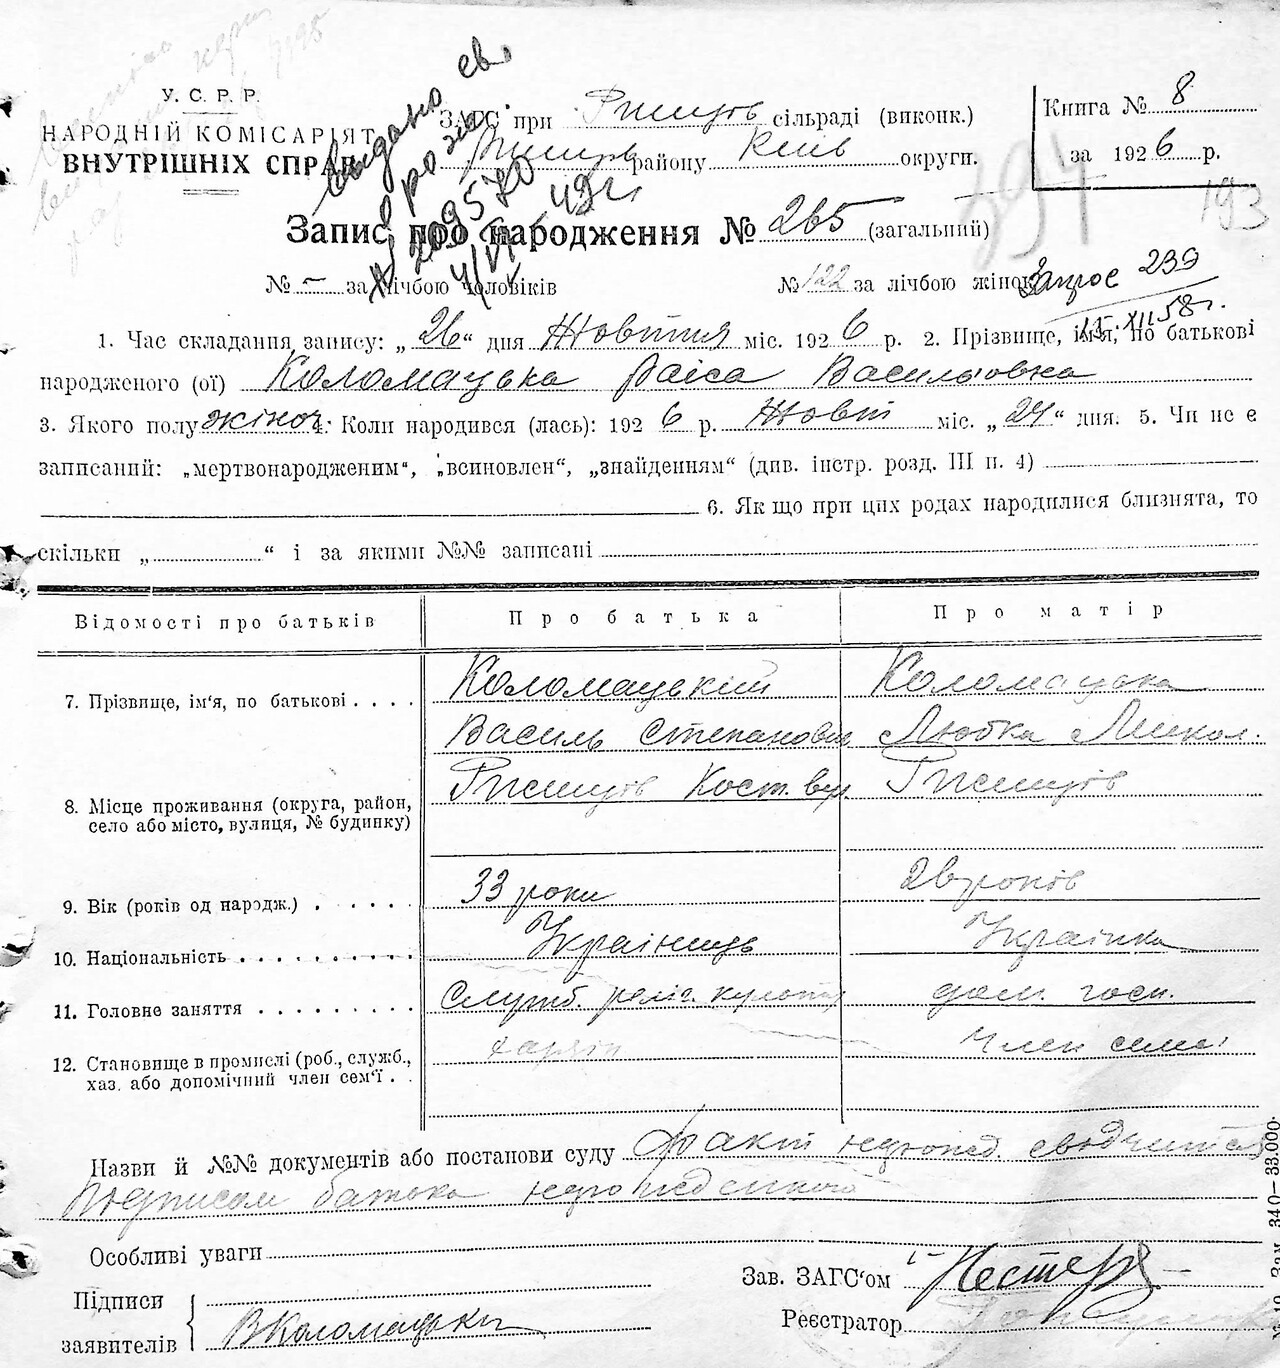 У. С. Р. Р.
НАРОДНІЙ КОМІСАРІЯТ
ВНУТРІШНІХ СПРАВ
ЗАГС при Ржищів сільраді (виконк.)
Ржищів району Київ округи.
Книга № 8
за 1926 р.
194
193
Видано св.
о рожд
209570
Запис про народження № 265 (загальний)
№ – за лічбою чоловіків
№ 122 за лічбою жінок
Запрос 239
58 г.
1. Час складання запису: „26“ дня Жовтня міс. 1926 р. 2. Прізвище, ім'я, по батькові
народженого (ої) Коломацька Раіса Васильовна
3. Якого полу жіноч. 4. Коли народився (лась): 1926 р. Жовт міс. „24“ дня. 5. Чи не є
записаний: „мертвонародженим“, „всиновлен“, „знайденям“ (див. інстр. розд. III п. 4)
6. Як що при цих родах народилися близнята, то
скільки „ “ і за якими №№ записані
Відомості про батьків Про батька Про матір
7. Прізвище, ім'я, по батькові Коломацький Коломацька
Василь Степанович Любка Микол.
8. Місце проживання (округа, район,
село або місто, вулиця, № будинку) Ржищів Кост. вул. Ржищів
9. Вік (років од народж.) 33 роки 26 років
10. Національність Українець Українка
11. Головне заняття Служб. реліг. культу дом. госп.
12. Становище в промислі (роб., служб.,
хаз. або допомічний член сем'ї Член семі
Назви й №№ документів або постанови суду Факт народ. сводчится
подписом батька
Особливі уваги
Підписи
заявителів ВКоломацький
Зав. ЗАГС'ом
Реєстратор
Зам. 340—33.000.